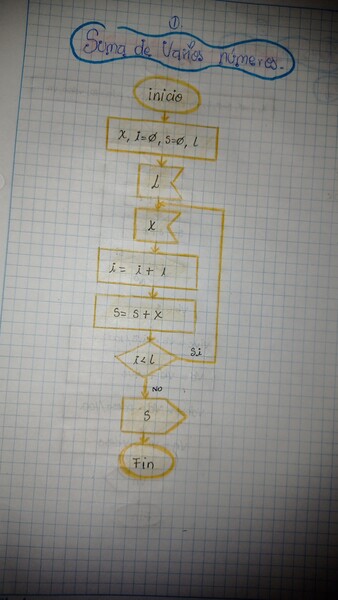 ①.
Suma de Varios números.
inicio
X, I=Ø, S=Ø, L
L
X
i = i + 1
S = S + X
I < L
Si
NO
S
Fin